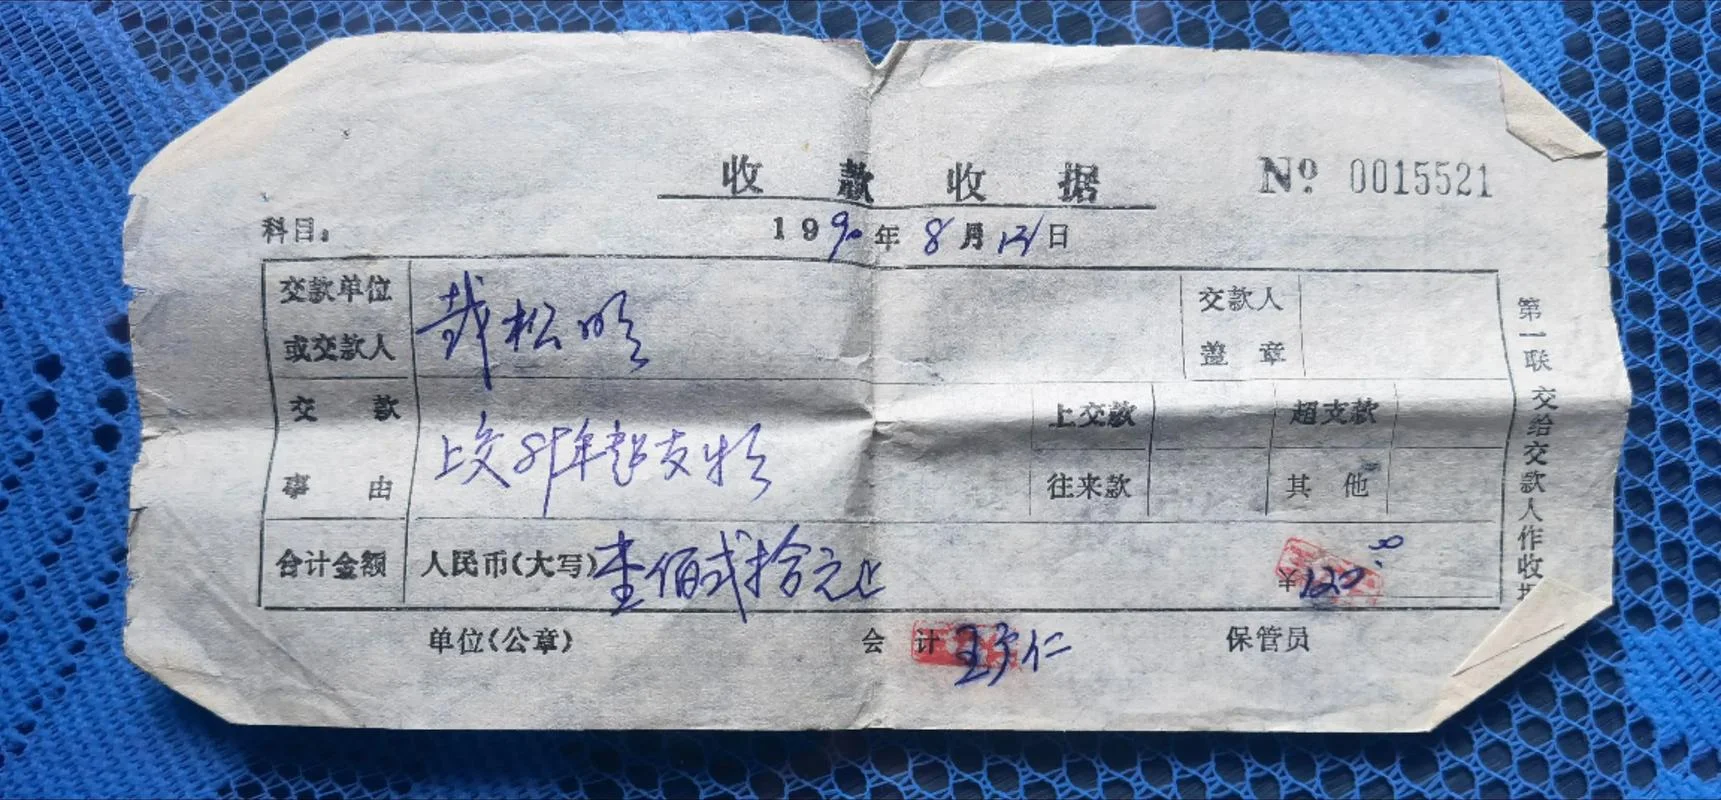 收款收据 № 0015521
科目: 1990年8月13日
交款单位或交款人 松明 交款人盖章
交款事由 上交89年超支款 上交款 超支款
往来款 其他
合计金额 人民币(大写)壹佰弍拾元正 ¥120.00
单位(公章) 会计 王 仁 保管员
第一联 交给交款人作收